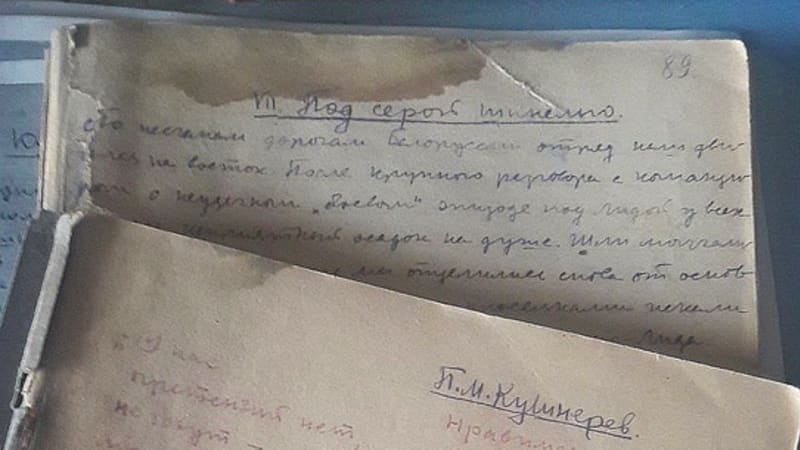 89
VII. Под серой шинелью.
По песчаным дорогам Белоруссии отряд наш дви-
гался на восток. После крупного разговора с команди-
ром о неудачном „боевом" эпизоде под Лидой у всех
неприятный осадок на душе. Шли молчали
мы отцепились снова от основ-
поселками искали
Лида
П.М.Кушнерев.
У нас
претензий нет
не зовут
Нравится